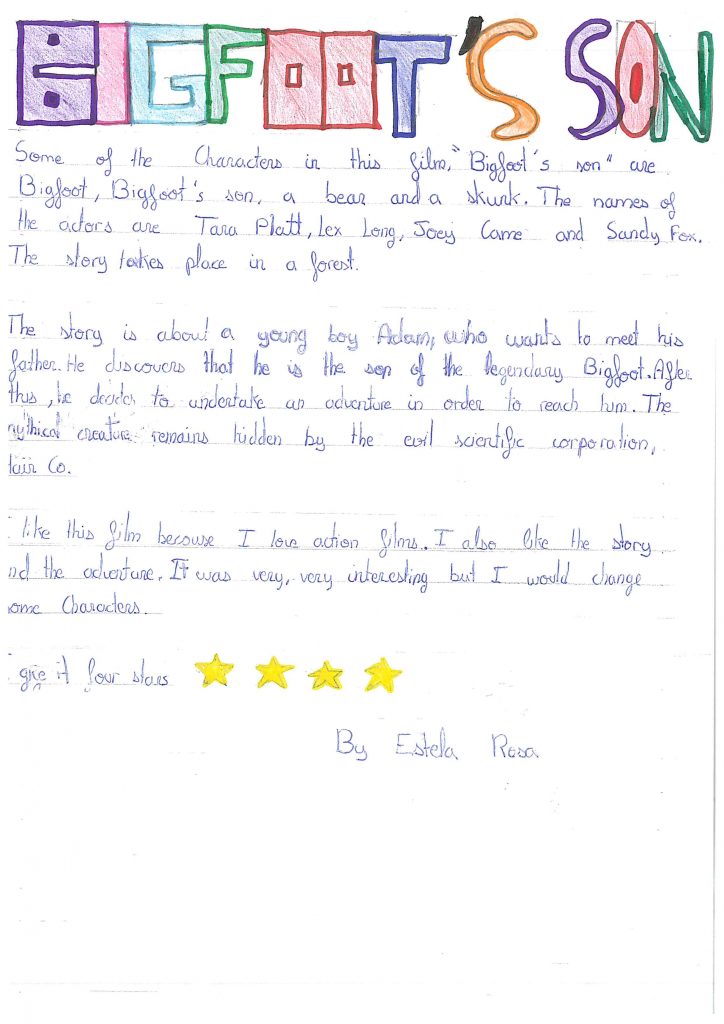 BIGFOOT'S SON
Some of the Characters in this film," Bigfoot's son" are
Bigfoot, Bigfoot's son, a bear and a skunk. The names of
the actors are Tara Platt, Lex Long, Joey Came and Sandy Fox.
The story takes place in a forest.
The story is about a young boy Adam, who wants to meet his
father. He discovers that he is the son of the legendary Bigfoot. After
this, he decides to undertake an adventure in order to reach him. The
mythical creature remains hidden by the evil scientific corporation,
Hair Co.
like this film because I love action films. I also like the story
nd the adventure. It was very, very interesting but I would change
ome Characters.
give it four stars
By Estela Rosa